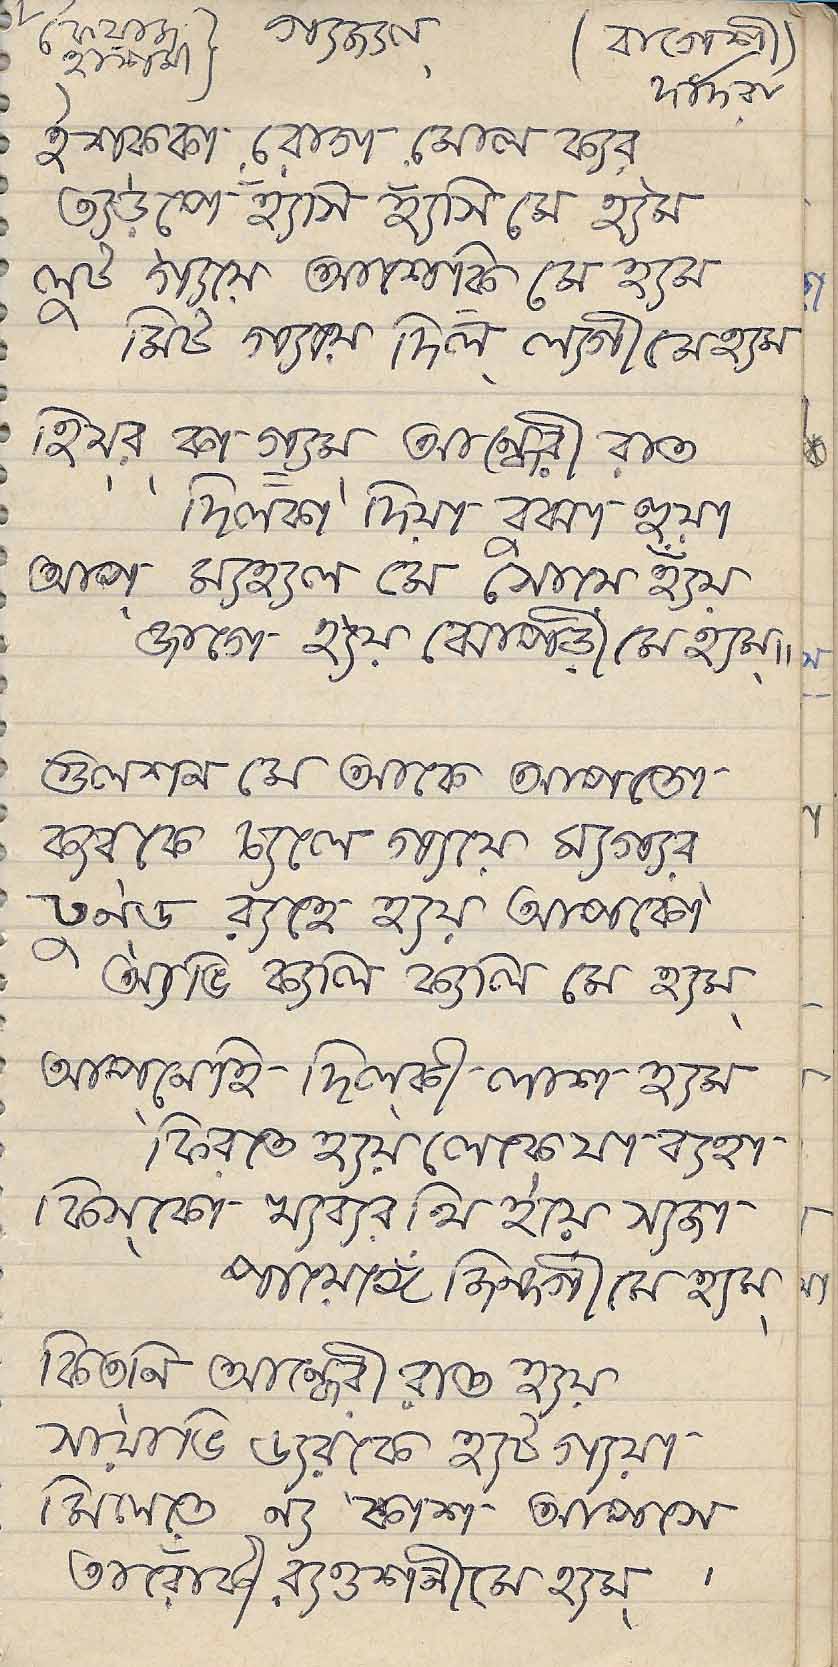 (ফৈয়াজ হাশমী) গ্যজ্যল্ (বাগেশ্রী)
দাদরা
ইশককা রোগ মোল ক্যর
ত্যড়পে হ্যাঁসি হ্যাঁসি মে হ্যম
লুট গ্যয়ে আশেকি মে হ্যম
মিট গ্যয়ে দিল্ ল্যগী মে হ্যম
হিযর্ কা গ্যম্ আন্ধেরী রাত
দিলকা দিয়া বুঝা হুয়া
আপ্ ম্যহ্যল মে সোয়ে হ্যঁয়
জাগে হ্যয় ঝোপড়ী মে হ্যম্॥
গুলশন মে আকে আপতো
ক্যরকে চ্যলে গ্যয়ে ম্যগ্যর
ঢুনড র‍্যহে হ্যয় আপকো
অ্যভি ক্যলি ক্যলি মে হ্যম্
আপনেহি দিল্‌কী লাশ হ্যম
ফিরতে হ্যয় লেকে যা ব্যহা
কিস্‌কো খ্যব্যর থি ইয়ে স্যজা
পায়েঙ্গে জিন্দগী মে হ্যম্
কিতনি আন্ধেরী রাত হ্যয়
সায়াভি ড্যরকে হ্যট গ্যয়া
মিলতে ন্য কাশ আপসে
তারোঁকী র‍্যওশনী মে হ্যম্ ।